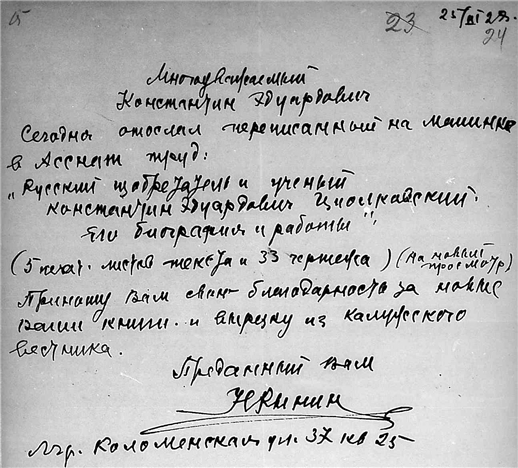 23
25/XI 27
24
Многоуважаемый
Константин Эдуардович
Сегодня отослал переписанный на машинке
в Асснат труд:
„Русский изобретатель и ученый
Константин Эдуардович Циолковский.
Его биография и работы"
(5 печат. листов текста и 33 чертежа) (на новый просмотр)
Приношу Вам свою благодарность за новые
ваши книги и вырезку из калужского
вестника.
Преданный Вам
НРынин
Лгр. Коломенская ул. 37 кв 25